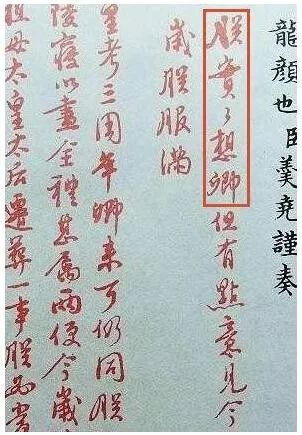 龍顏也臣羹堯謹奏
朕實々想卿但有點意見今
歲朕服滿
皇考三周年卿来可仍同朕
陵寢以盡全禮甚属兩便今歲
祖母太皇太后遷葬一事朕必當